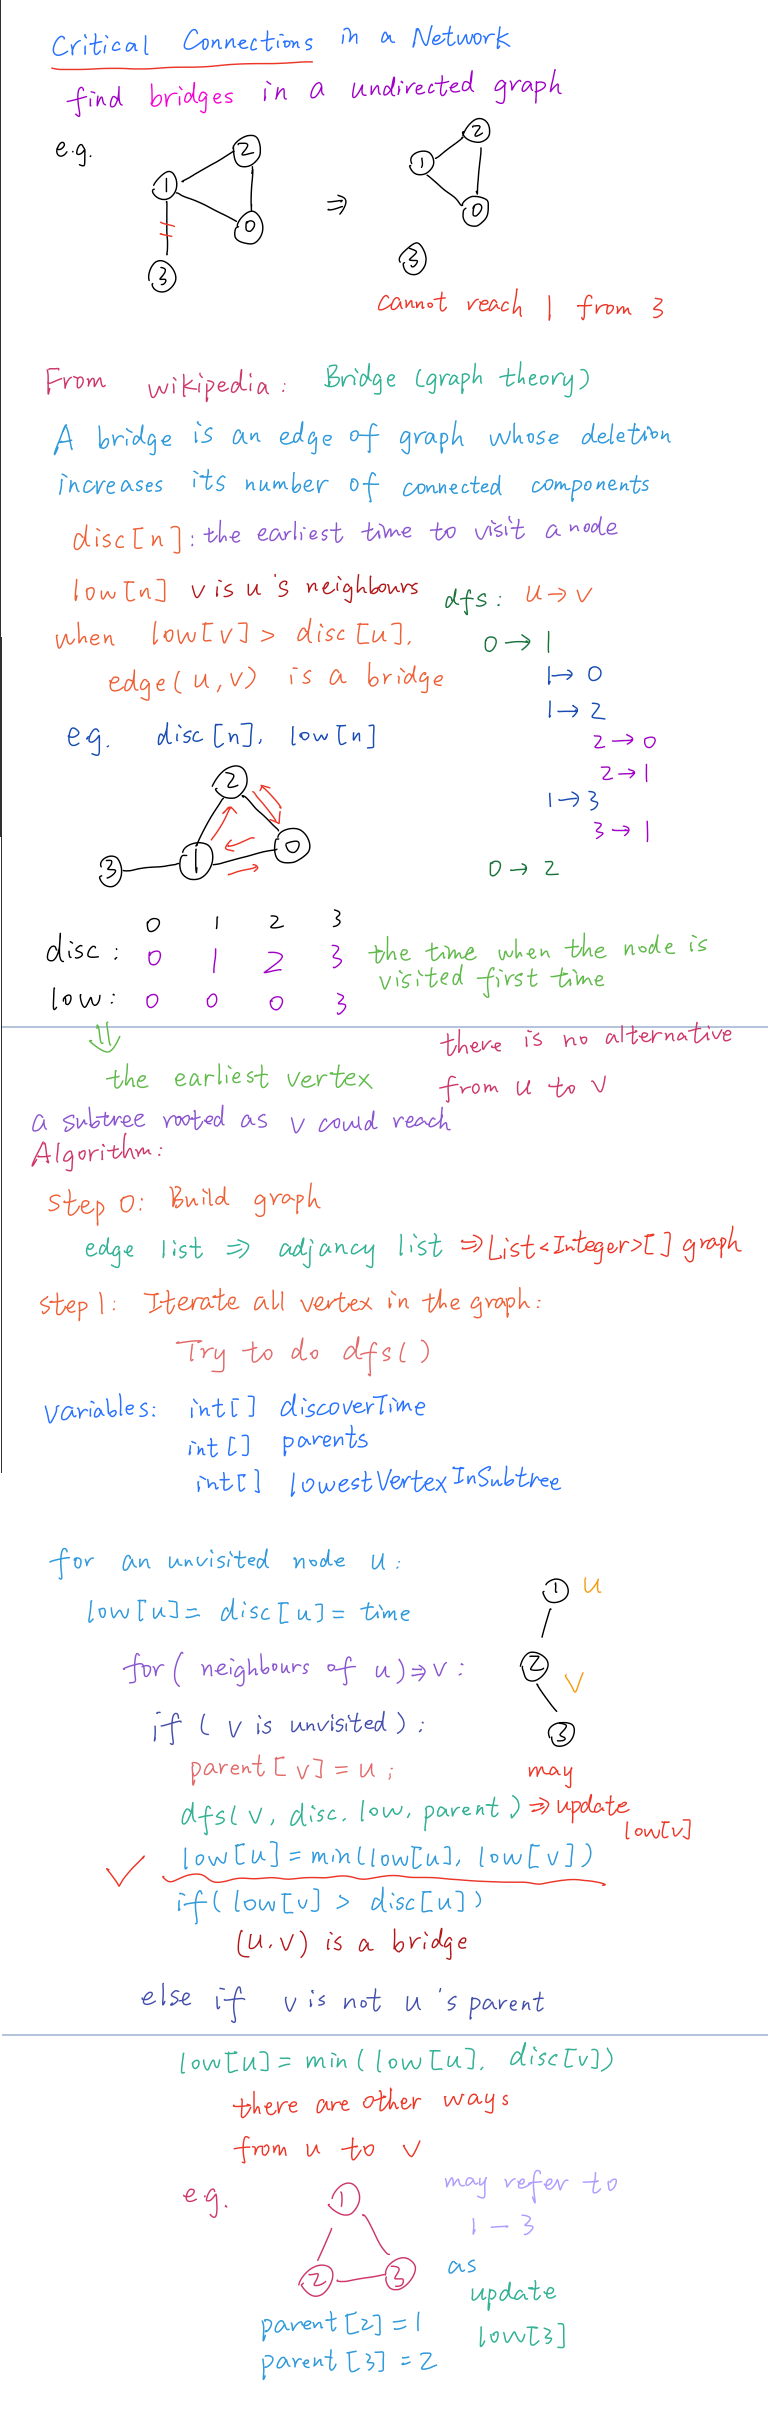 Critical Connections in a Network
find bridges in a undirected graph
e.g.
1 2 0 3 ⇒ 1 2 0 3
cannot reach 1 from 3
From wikipedia: Bridge (graph theory)
A bridge is an edge of graph whose deletion
increases its number of connected components
disc[n]: the earliest time to visit a node
low[n] v is u's neighbours
when low[v] > disc[u],
edge(u,v) is a bridge
dfs: u → v
0 → 1
1 → 0
1 → 2
2 → 0
2 → 1
1 → 3
3 → 1
0 → 2
e.g. disc[n], low[n]
2
3 1 0
0 1 2 3
disc: 0 1 2 3
low: 0 0 0 3
the time when the node is
visited first time
⇓
the earliest vertex
a subtree rooted as v could reach
there is no alternative
from u to v
Algorithm:
Step 0: Build graph
edge list ⇒ adjancy list ⇒ List<Integer>[] graph
step 1: Iterate all vertex in the graph:
Try to do dfs()
variables: int[] discoverTime
int[] parents
int[] lowestVertexInSubtree
for an unvisited node u:
low[u] = disc[u] = time
for (neighbours of u) ⇒ v:
if (v is unvisited):
parent[v] = u;
dfs(v, disc, low, parent) ⇒ may update low[v]
✓ low[u] = min(low[u], low[v])
if (low[v] > disc[u])
(u,v) is a bridge
1 u
2 v
3
else if v is not u's parent
low[u] = min(low[u], disc[v])
there are other ways
from u to v
e.g.
1
2 3
parent[2] = 1
parent[3] = 2
may refer to
1 - 3
as
update
low[3]